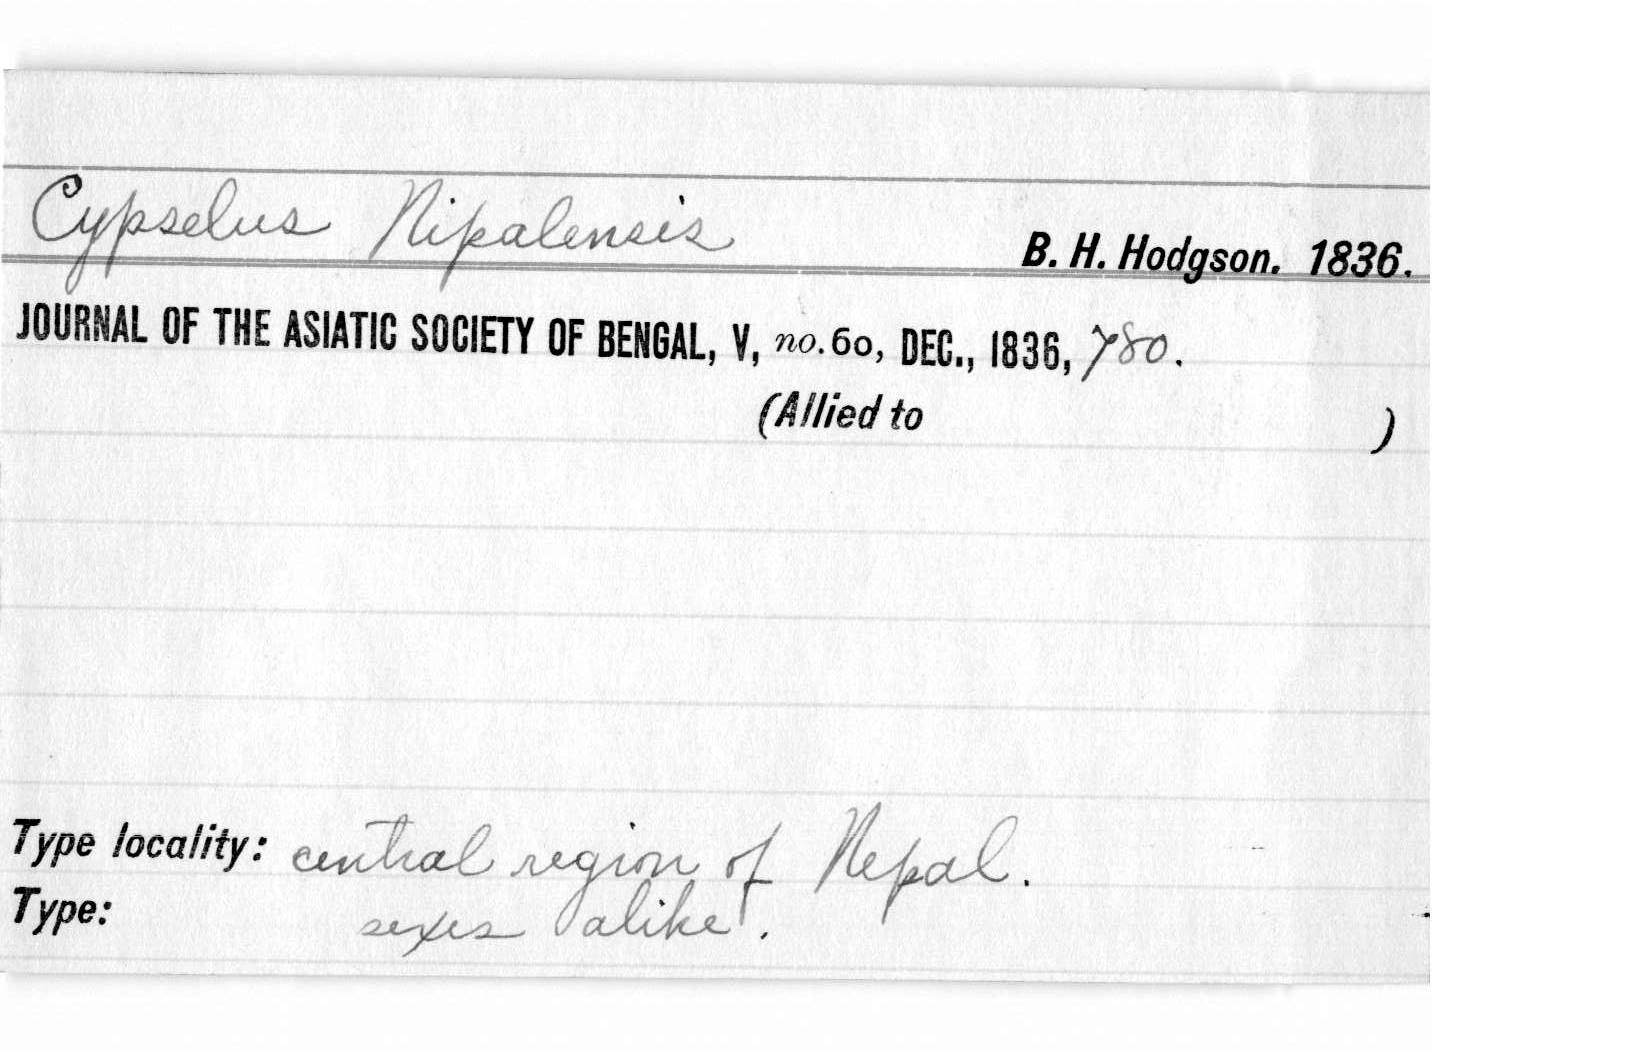 Cypselus Nipalensis B. H. Hodgson. 1836.
JOURNAL OF THE ASIATIC SOCIETY OF BENGAL, V, no. 60, DEC., 1836, 780.
(Allied to )
Type locality: central region of Nepal.
Type: sexes alike.